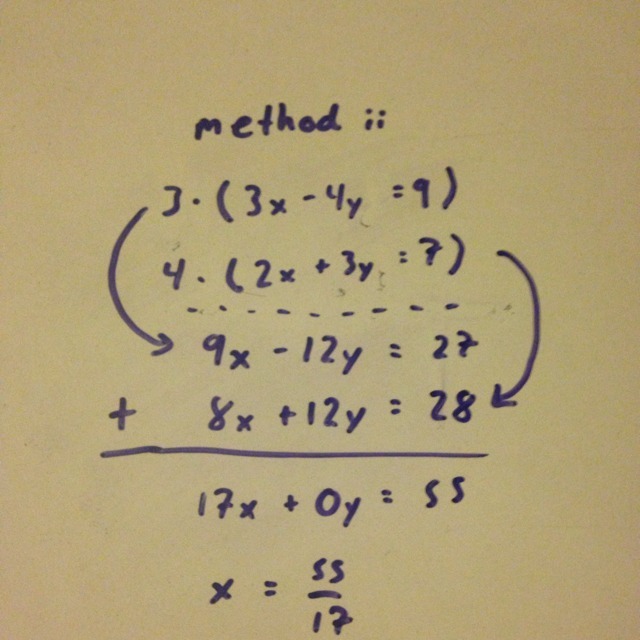 method ii
3 · (3x - 4y = 9)
4 · (2x + 3y = 7)
9x - 12y = 27
+ 8x + 12y = 28
17x + 0y = 55
x = 55/17